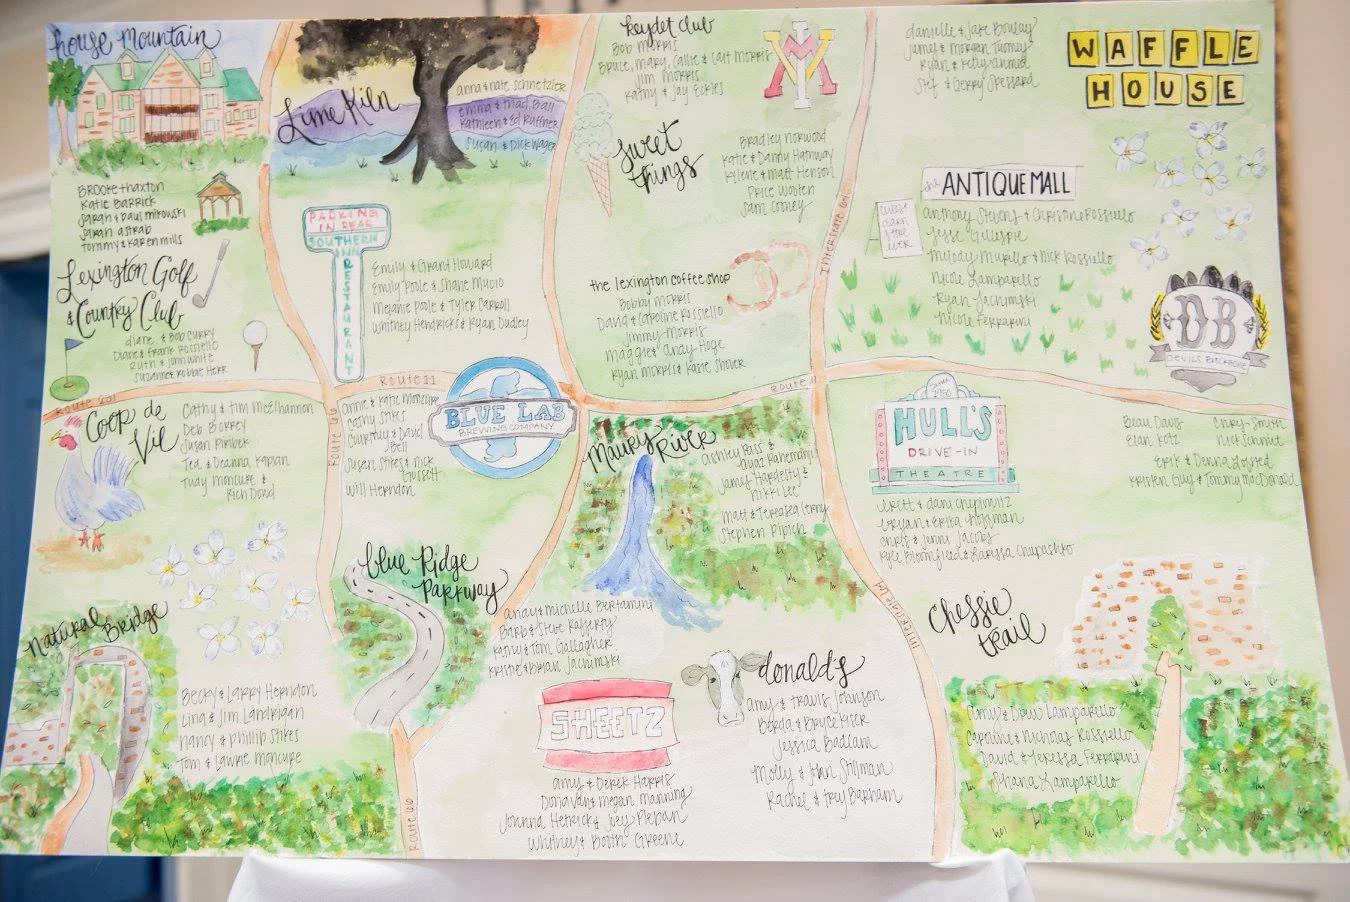 house Mountain
Brooke thaxton
Katie Barrick
Sarah & Paul Mikowski
Sarah astrab
Tommy & Karen Mills
Lexington Golf
& Country Club
Diane & Bob Curry
Diane & Frank Rossiello
Ruth & John White
Suzanne & Robbie Herr
Route 251
Coop de
Vil
Cathy & Tim McElhannon
Deb Borrey
Susan
Ted & Deanna Kaplan
Judy Moncure &
Rich Dowd
natural
Bridge
Becky & Larry Herndon
Lina & Jim Landrigan
Nancy & Phillip Stikes
Tom & Lawrie Moncure
Lime Kiln
anna & nate schnetzler
emma & thad Ball
Kathleen & Ed Ruffner
Susan & Dick Wager
PARKING
IN REAR
SOUTHERN
INN
RESTAURANT
Emily & Grant Howard
Emily Poole & Shane Mucio
Melanie Poole & Tyler Carroll
Whitney Hendricks & Ryan Dudley
Route 11
Route
annie & Katie Moncure
Cathy Stikes
Courtney & David
Bell
Susan Stikes & Nick
Gussett
Will Herndon
BLUE LAB
BREWING COMPANY
blue Ridge
Parkway
anay & Michelle Bertamini
Barb & Steve Rafferty
Kathy & Tom Gallagher
Kristie & Brian Jachimski
Route
keydet club
Bob Morris
Bruce, Mary, Callie & Cait Morris
Jim Morris
Kathy & Jay Eckles
VMI
sweet
things
Bradley Norwood
Katie & Danny Hathway
Kylene & Matt Henson
Price Wooten
Sam Cooney
the lexington coffee shop
Bobby Morris
David & Caroline Rossiello
Jimmy Morris
Maggie & Andy Hoge
Ryan Morris & Katie Shover
Route 11
Interstate 64
Maury
River
Ashley Bass &
Ramemani
Jamey Hardesty &
Nikki Lee
Matt & Terressa Cerny
Stephen Pipich
SHEETZ
Amy & Derek Harris
Donavan & Megan Manning
Joanna Hetrick & Joey Plepan
Whitney & Booth Greene
donald's
Amy & Travis Johnson
& Bryce Kiser
Jessica Badcam
Molly & Stillman
Rachel & Trey Barham
danielle & Jake Boway
Jamey & Morgen Twomey
Ryan & Kelly
Stef & Gerry Spessard
WAFFLE
HOUSE
the ANTIQUE MALL
Anthony Stevens & Christine Rossiello
Jesse Gillespie
Melody Murillo & Nick Rossiello
Nicole Lamparello
Ryan Jachimski
Nicole Ferrarini
DB
DEVILS BACKBONE
Since
1950
HULL'S
DRIVE-IN
THEATRE
Brett & Dani Chepinitz
Bryan & Erika Hoffman
Chris & Jenni Jacobs
Kyle Bloomfield & Larissa Chapashko
Beau Davis
Elan Katz
Cary-Smith
Nick Schmit
Erik & Denna Lofsted
Kristen Guy & Tommy MacDonald
Interstate
Chessie
trail
Amy & Drew Lamparello
Caroline & Nicholas Rossiello
David & Teressa Ferrarini
Shana Lamparello